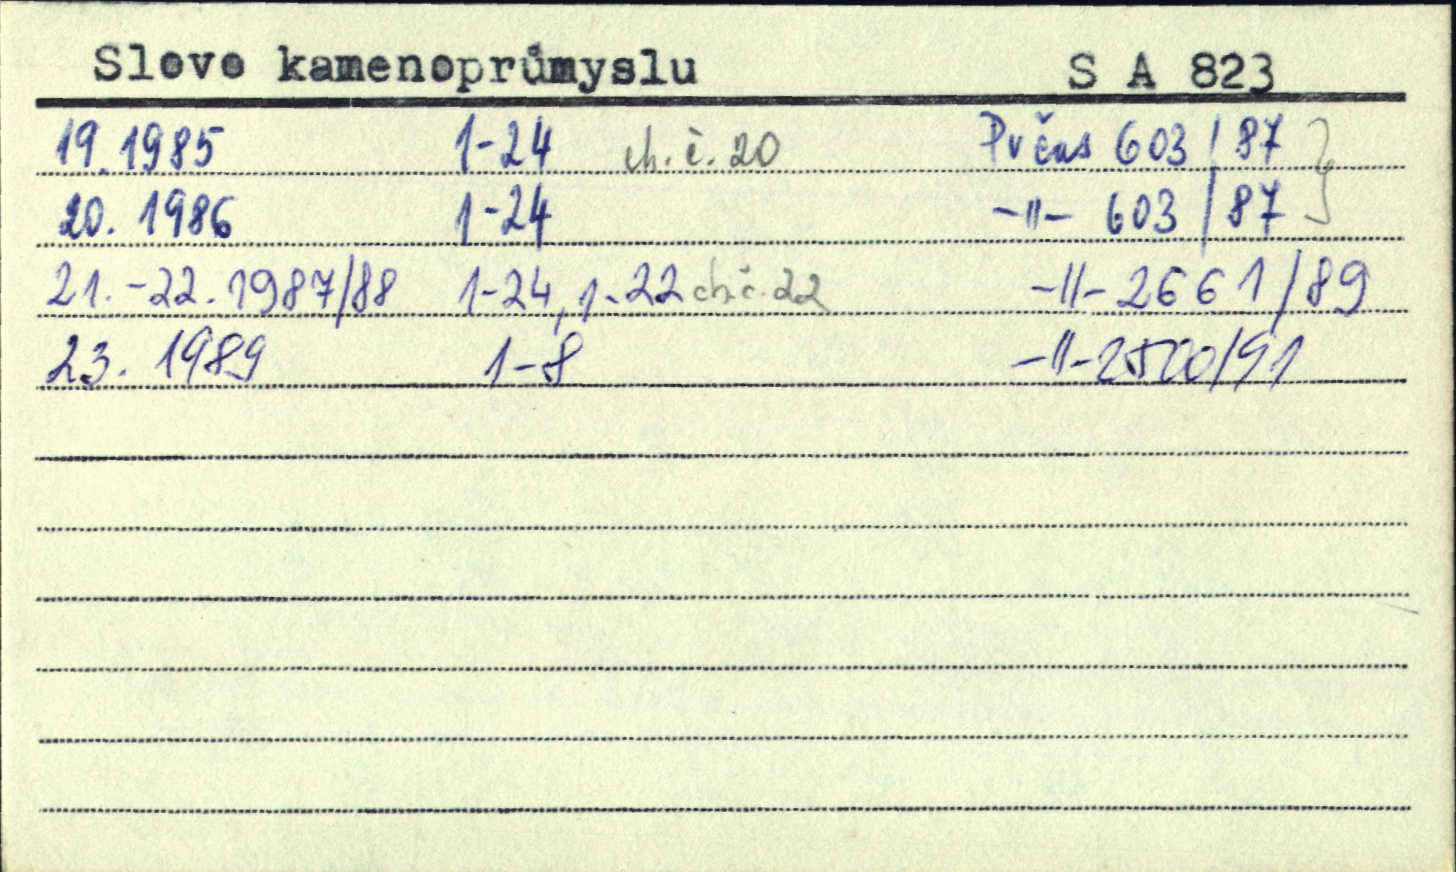 Slovo kamenoprůmyslu S A 823
19. 1985 1-24 ch. č. 20 Pv čas 603/87
20. 1986 1-24 -"- 603/87
21.-22. 1987/88 1-24, 1-22 ch.č. 22 -"- 2661/89
23. 1989 1-8 -"- 2500/91